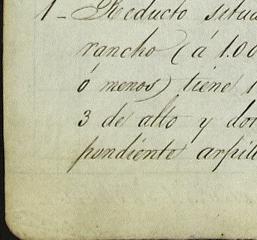 1_ Reducto situa
rancho (á 1.00
ó menos) tiene 1
3 de alto y do
pondiente arpill